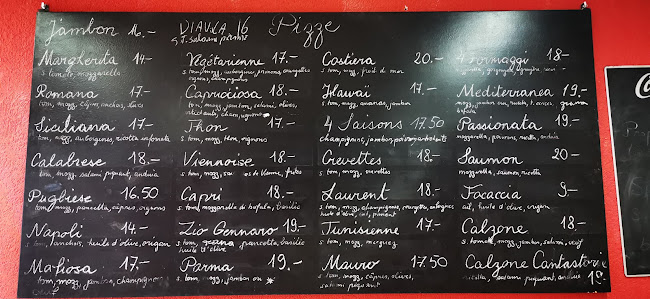 Jambon 16.- DIAVOLA 16 Pizze
Margherita 14-
s. tomate, mozzarella
Romana 17-
tom, mozz, câpres, anchois, olives
Siciliana 17-
tom, mozz, aubergines, ricotta
Calabrese 18.-
tom, mozz, salami piquant, anduia
Pugliese 16.50
tom, mozz, pancetta, câpres, origano
Napoli 14-
s. tom, anchois, huile d'olive, origan
Mafiosa 17.-
tom, mozz, jambon, champignons
Végétarienne 17.-
Capricciosa 18-
s. tom, mozz, jambon, salami, olives,
Thon 17.-
s. tom, mozz, thon, oignons
Viennoise 18.-
s. tom, mozz, de Vienne, frites
Capri 18.-
s. tom, mozzarella de bufala, basilic
Zio Gennaro 19.-
s. tom, pancetta, basilic
huile d'olive
Parma 19.-
s. tom, mozz, jambon cru
Costiera 20.-
s. tom, mozz, fruit de mer
Hawaï 17-
s. tom, mozz, ananas, jambon
4 Saisons 17.50
champignons, jambon, poivrons, artichauts
Crevettes 18-
s. tom, mozz, crevettes
Laurent 18.-
s. tom, mozz, champignons, courgettes, aubergines
huile d'olive, ail, piment
Tunisienne 17-
s. tom, mozz, merguez
Mauro 17.50
s. tom, mozz, câpres, olives,
salami piquant
4 Formaggi 18-
Mediterranea 19.-
Passionata 19.-
Saumon 20-
mozzarella, saumon, ricotta
Focaccia 9-
ail, huile d'olive, origan
Calzone 18.-
s. tomate, mozz, jambon, salami, oeuf
Calzone Cantastorie